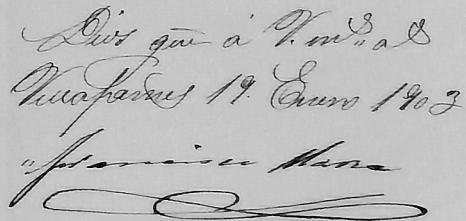 Dios gue á V. ms. as
Villafamés 19. Enero 1903
Francisco Mas